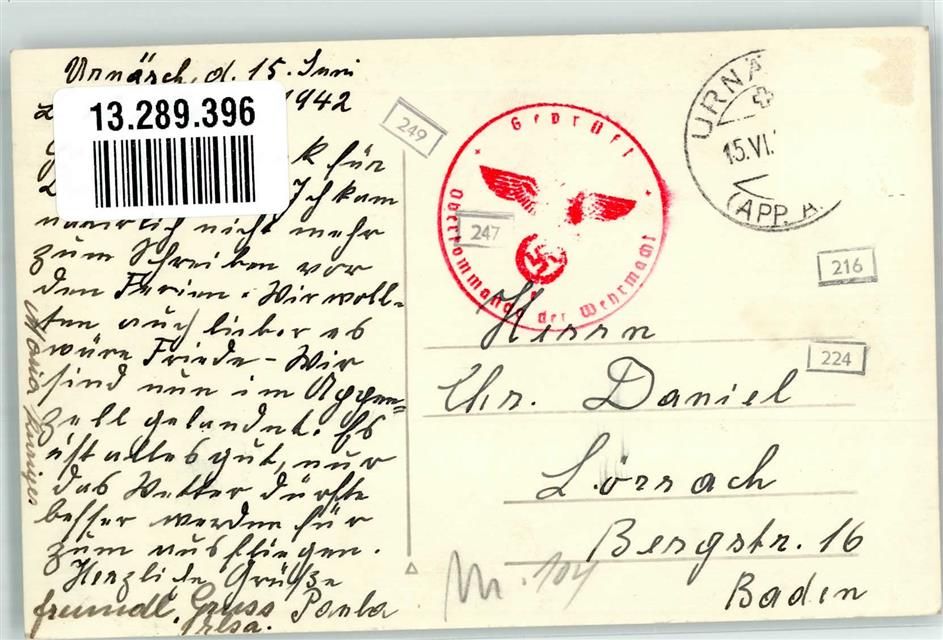 Urnäsch, d. 15. Juni
1942
13.289.396
k für
Ich kam
natürlich nicht mehr
zum Schreiben vor
den Ferien. Wir woll-
ten auch lieber es
wäre Friede - Wir
sind nun im Appen=
zell gelandet. Es
ist alles gut, nur
das Wetter dürfte
besser werden für
zum ausfliegen.
Herzliche Grüße
Paula
freundl. Gruss
Maria
249
Geprüft
Oberkommando der Wehrmacht
247
URNÄ
15.VI.
(APP. A.
216
224
Herrn
Chr. Daniel
Lörrach
Bergstr. 16
Baden